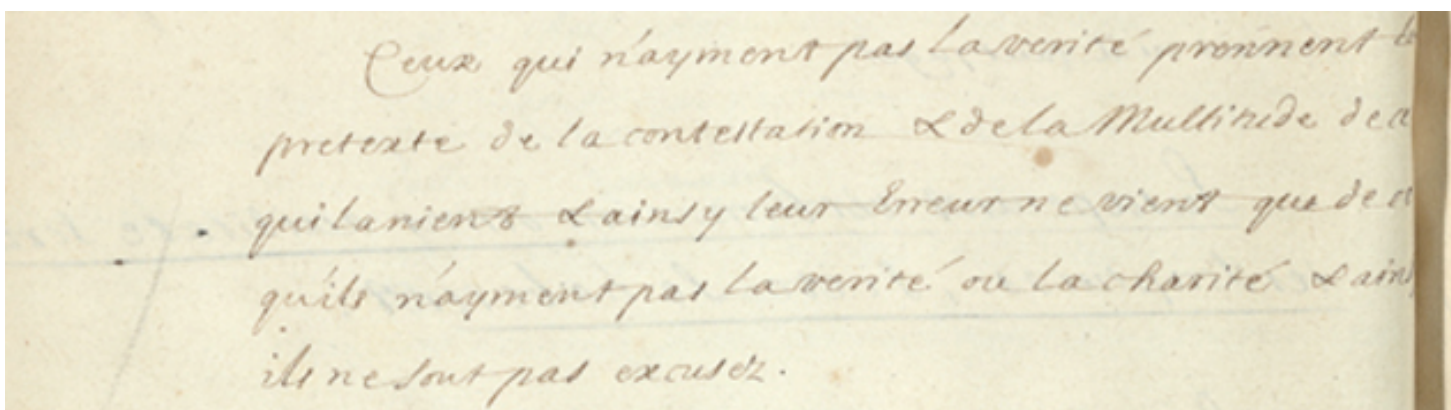 Ceux qui n'ayment pas la verité prennent le
pretexte de la contestation & de la Multitude de c
qui la nient & ainsy leur Erreur ne vient que de c
qu'ils n'ayment pas la verité ou la charité & ains
ils ne sont pas excuséz.